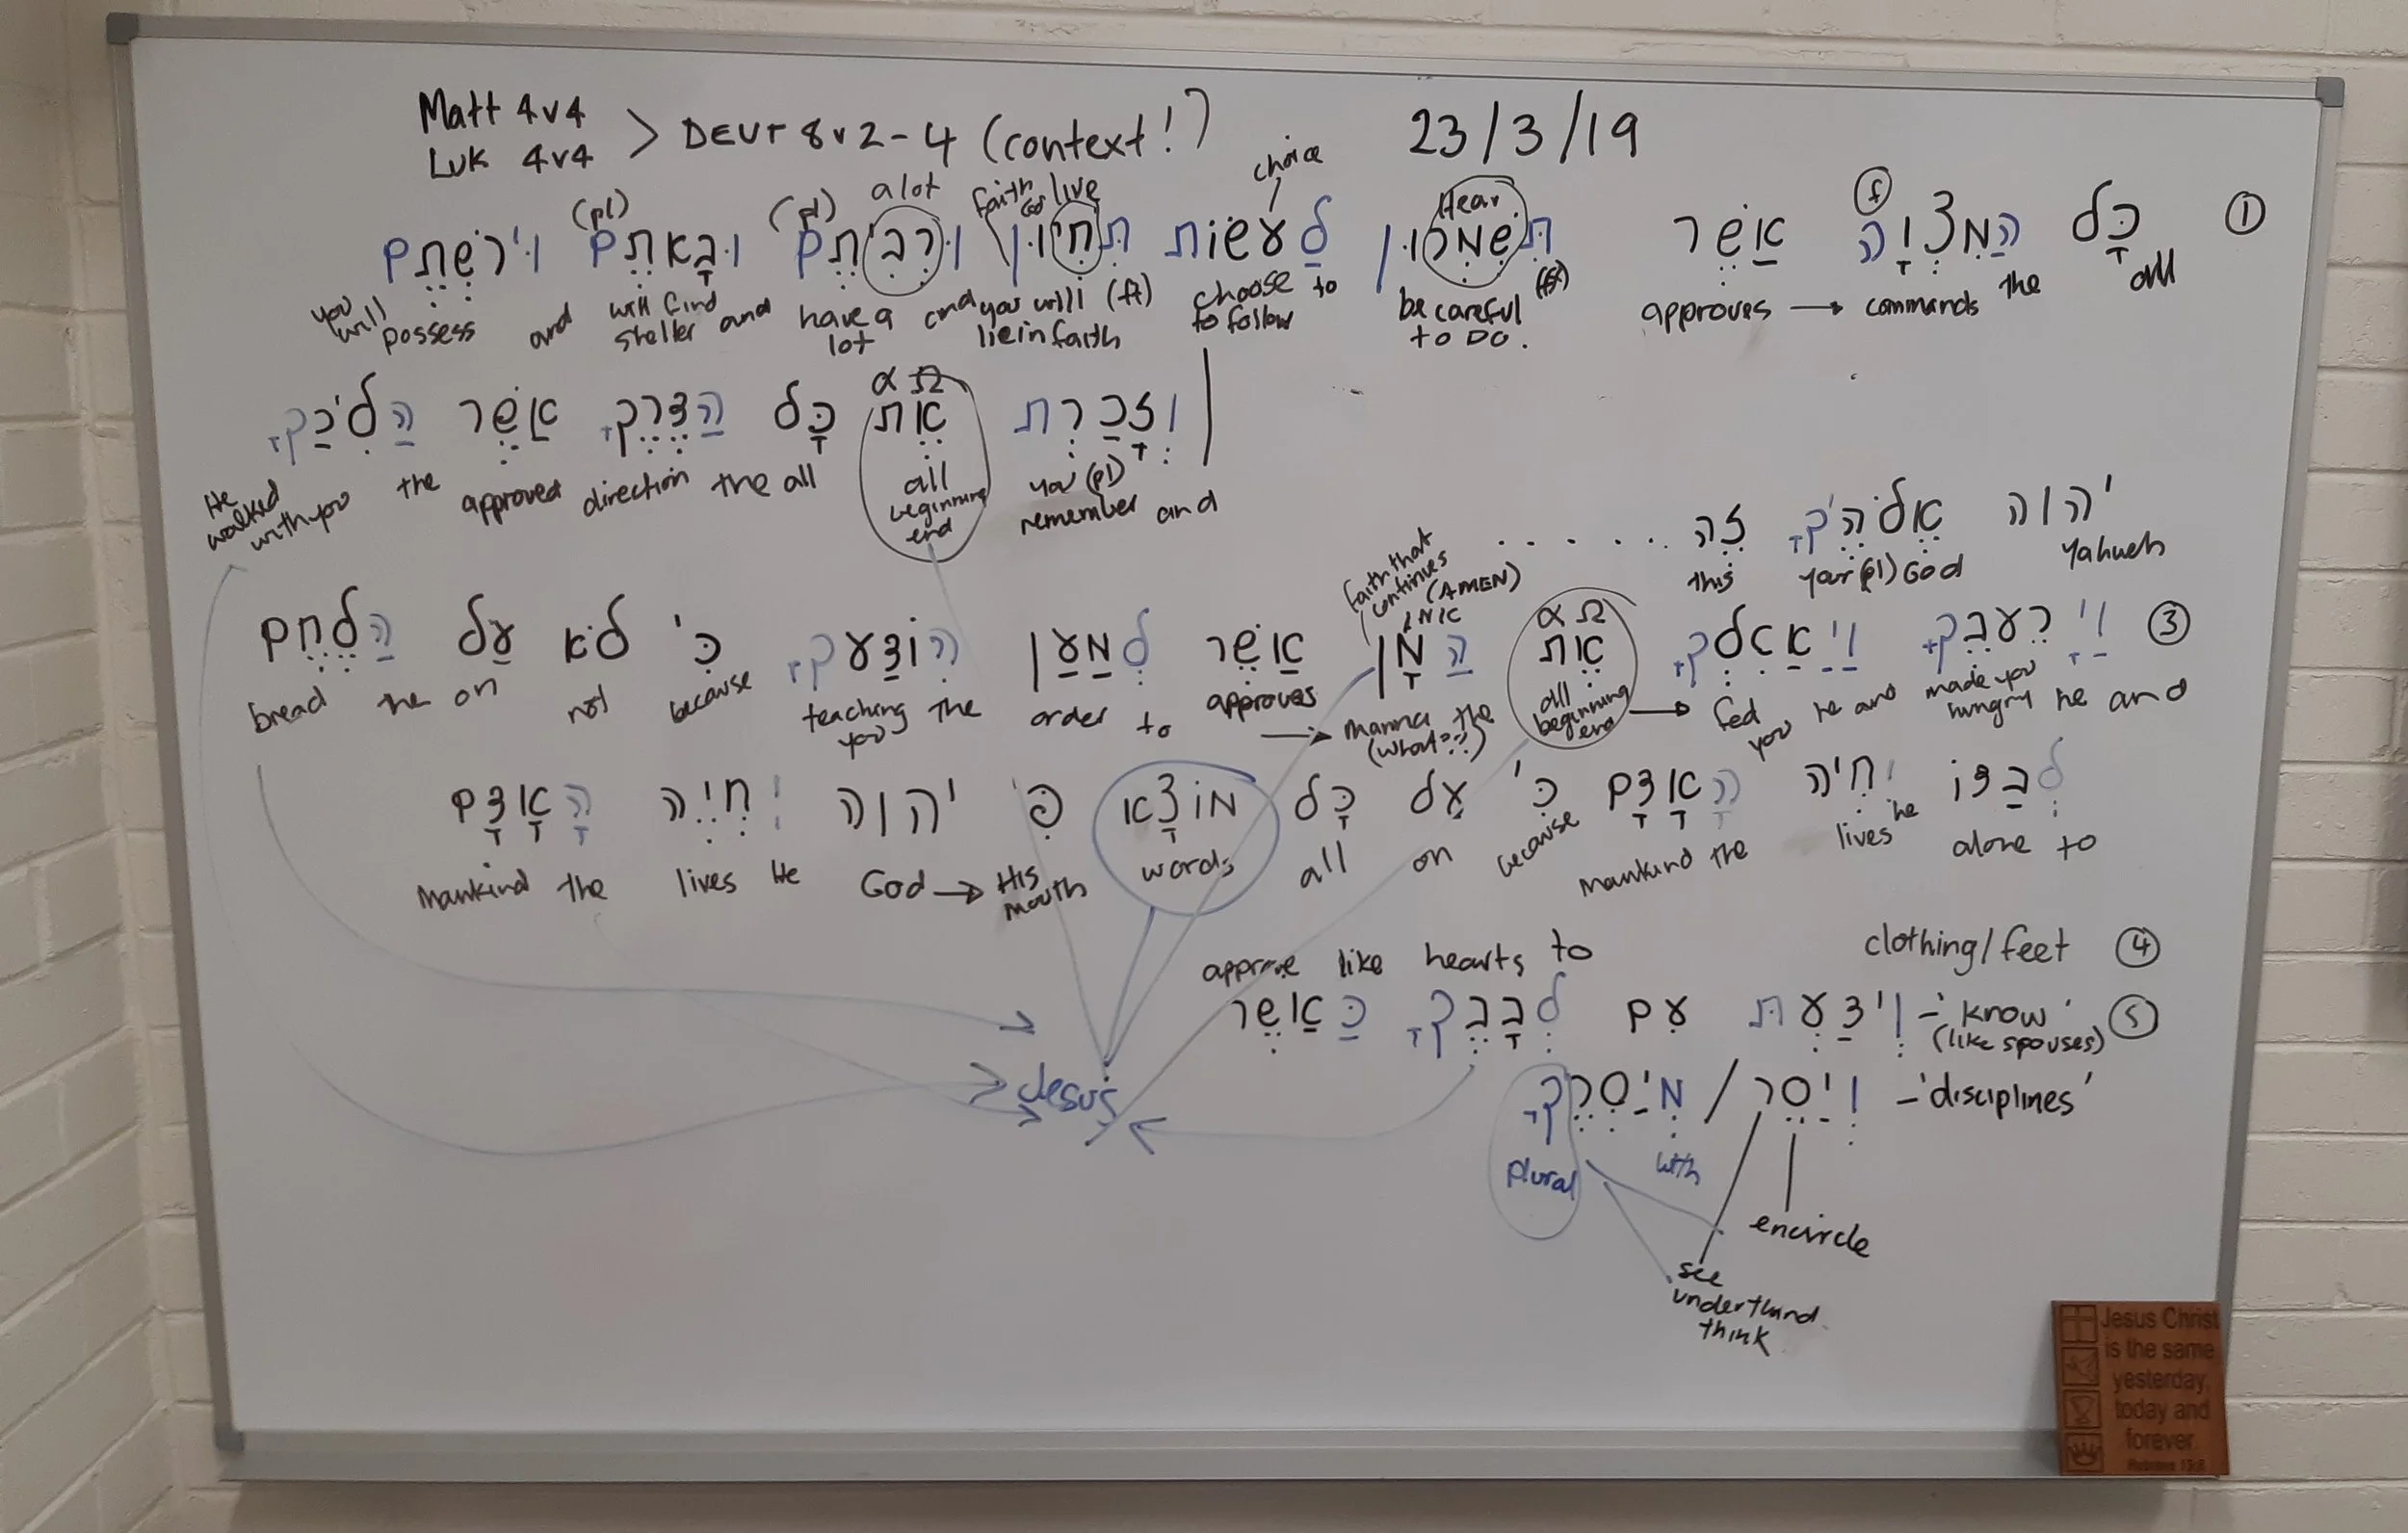 Matt 4v4
Luk 4v4 > DEUT 8v2-4 (context!?) 23/3/19
(pl) (pl) a lot faith live choice Hear f
כָּל הַמִּצְוָה אֲשֶׁר תִּשְׁמְרוּן לַעֲשׂוֹת תִּחְיוּן וּרְבִיתֶם וּבָאתֶם וִירִשְׁתֶּם ①
all the commands → approves be careful to DO. to choose to follow (ft) you will lie in faith and have a lot and will find shelter and you will possess
α Ω
וְזָכַרְתָּ אֵת כָּל הַדֶּרֶךְ אֲשֶׁר הֹלִיכֲךָ
and remember you (pl) all beginning end all the direction approved the He walked with you
יהוה אֱלֹהֶיךָ זֶה . . . . . .
Yahweh your (pl) God this
faith that continues (AMEN) α Ω
③ וַיְרְעִבֶךָ וַיַּאֲכִלְךָ אֵת הַמָּן אֲשֶׁר לְמַעַן הוֹדִעֲךָ כִּי לֹא עַל הַלֶּחֶם
and he made you hungry and he fed you ← all beginning end the manna (what??) ← approves to order the teaching you because not on the bread
לְבַדּוֹ יִחְיֶה הָאָדָם כִּי עַל כָּל מוֹצָא פִּי יהוה יִחְיֶה הָאָדָם
to alone he lives the mankind because on all words His mouth ← God He lives the mankind
clothing/feet ④
approve like hearts to
וְיָדַעְתָּ עִם לְבָבֶךָ כַּאֲשֶׁר - 'know' (like spouses) ⑤
Jesus
יְיַסֵּר / מְיַסְּרֶךָּ - 'disciplines'
Plural with
encircle
see
underthand
think
Jesus Christ
is the same
yesterday,
today and
forever.
Hebrews 13:8